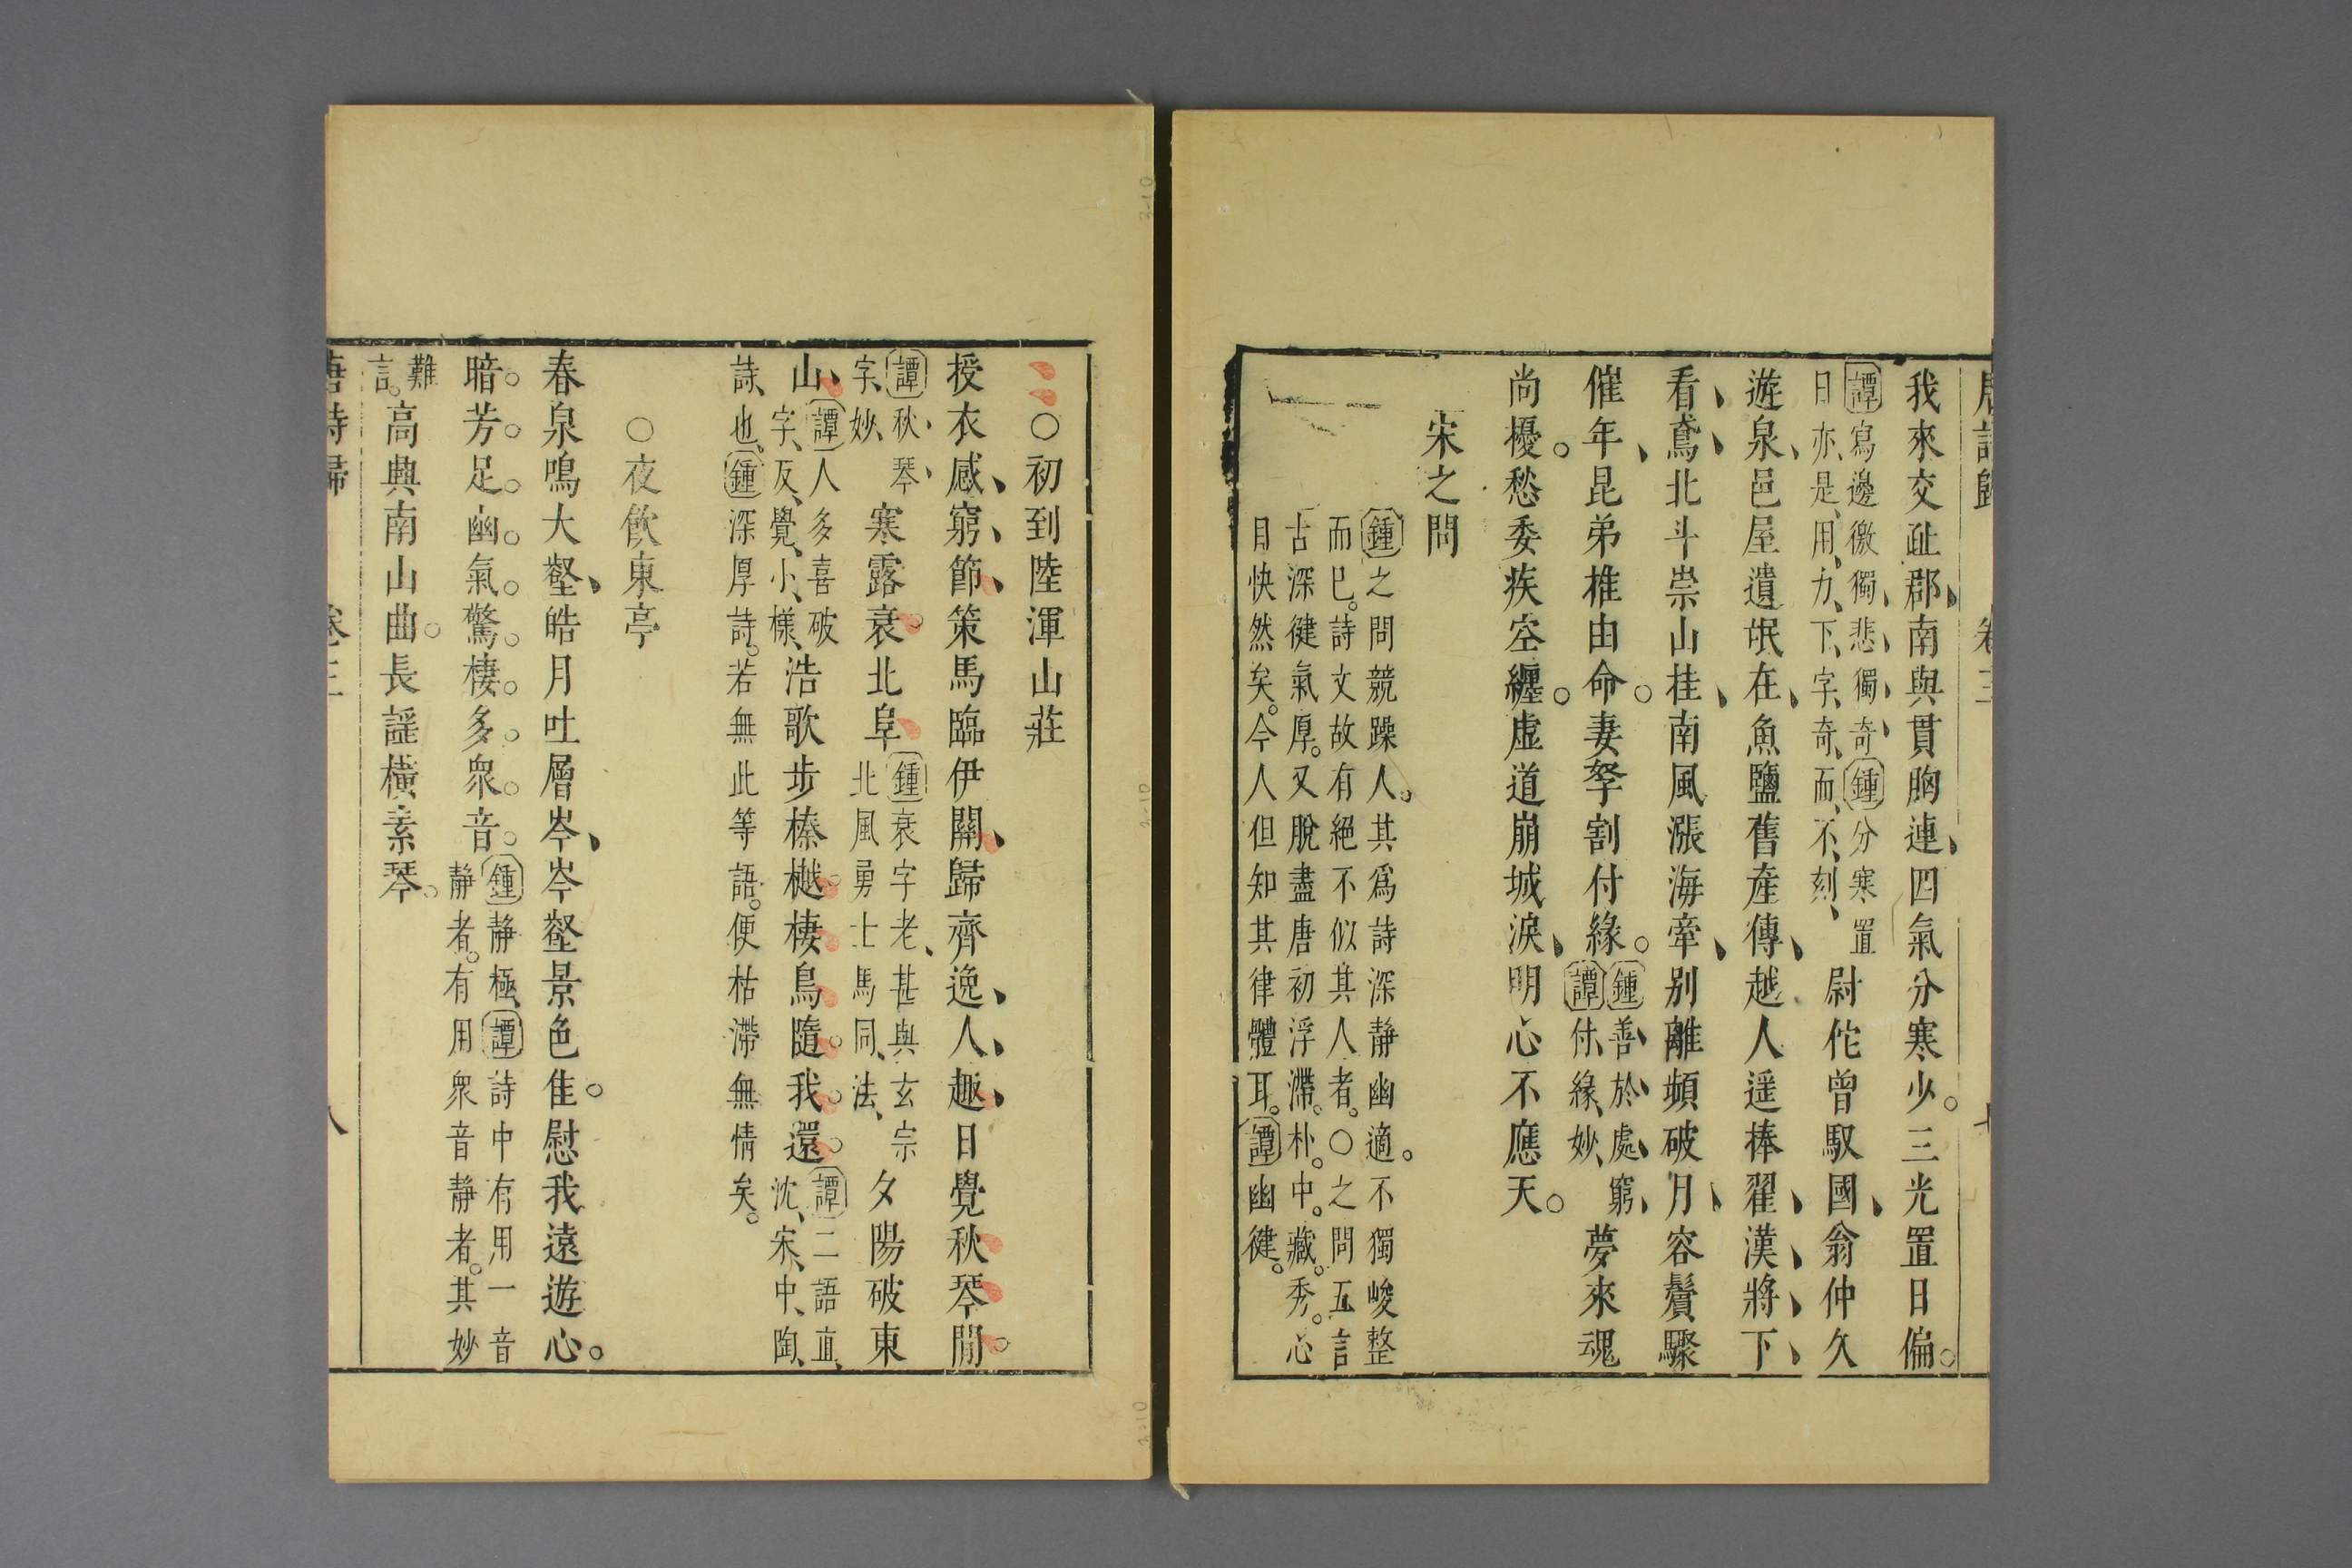 唐詩歸 卷三 七
我來交趾郡南與貫胸連四氣分寒少三光置日偏
譚寫邊徼獨悲獨奇鍾分寒置
日亦是用力下字奇而不刻
尉佗曾馭國翁仲久
遊泉邑屋遺氓在魚鹽舊產傳越人遥捧翟漢將下
看鳶北斗崇山挂南風漲海牽别離頻破月容鬢驟
催年昆弟推由命妻孥割付緣
鍾善於處窮
譚付緣妙
夢來魂
尚擾愁委疾空纏虛道崩城淚明心不應天
宋之問
鍾之問競躁人其爲詩深靜幽適不獨峻整
而巳詩文故有絕不似其人者○之問五言
古深徤氣厚又脫盡唐初浮滯朴中藏秀心
目快然矣今人但知其律體耳譚幽徤
○初到陸渾山莊
授衣感窮節策馬臨伊關歸齊逸人趣日覺秋琴閒
譚秋琴
字妙
寒露衰北阜
鍾衰字老甚與玄宗
北風勇士馬同法
夕陽破東
山
譚人多喜破
字反覺小樣
浩歌步榛樾棲鳥隨我還
譚二語直
沈宋中陶
詩也鍾深厚詩若無此等語便枯滯無情矣
○夜飲東亭
春泉鳴大壑皓月吐層岑岑壑景色佳慰我遠遊心
暗芳足幽氣驚棲多衆音
鍾靜極譚詩中有用一音
靜者有用衆音靜者其妙
難
言
高興南山曲長謡橫素琴
唐詩歸 卷三 八